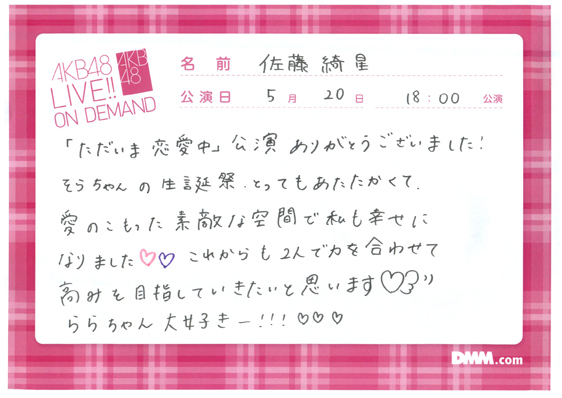 AKB48
LIVE!!
ON DEMAND
AKB
48
名 前 佐藤 綺星
公演日 5月 20日 18:00 公演
「ただいま 恋愛中」公演 ありがとうございました!
そらちゃん の 生誕祭、とってもあたたかくて、
愛のこもった 素敵な空間で私も幸せに
なりました♡♡ これからも 2人で力を合わせて
高みを目指していきたいと思います♡
ららちゃん 大好きー!!! ♡♡♡
DMM.com